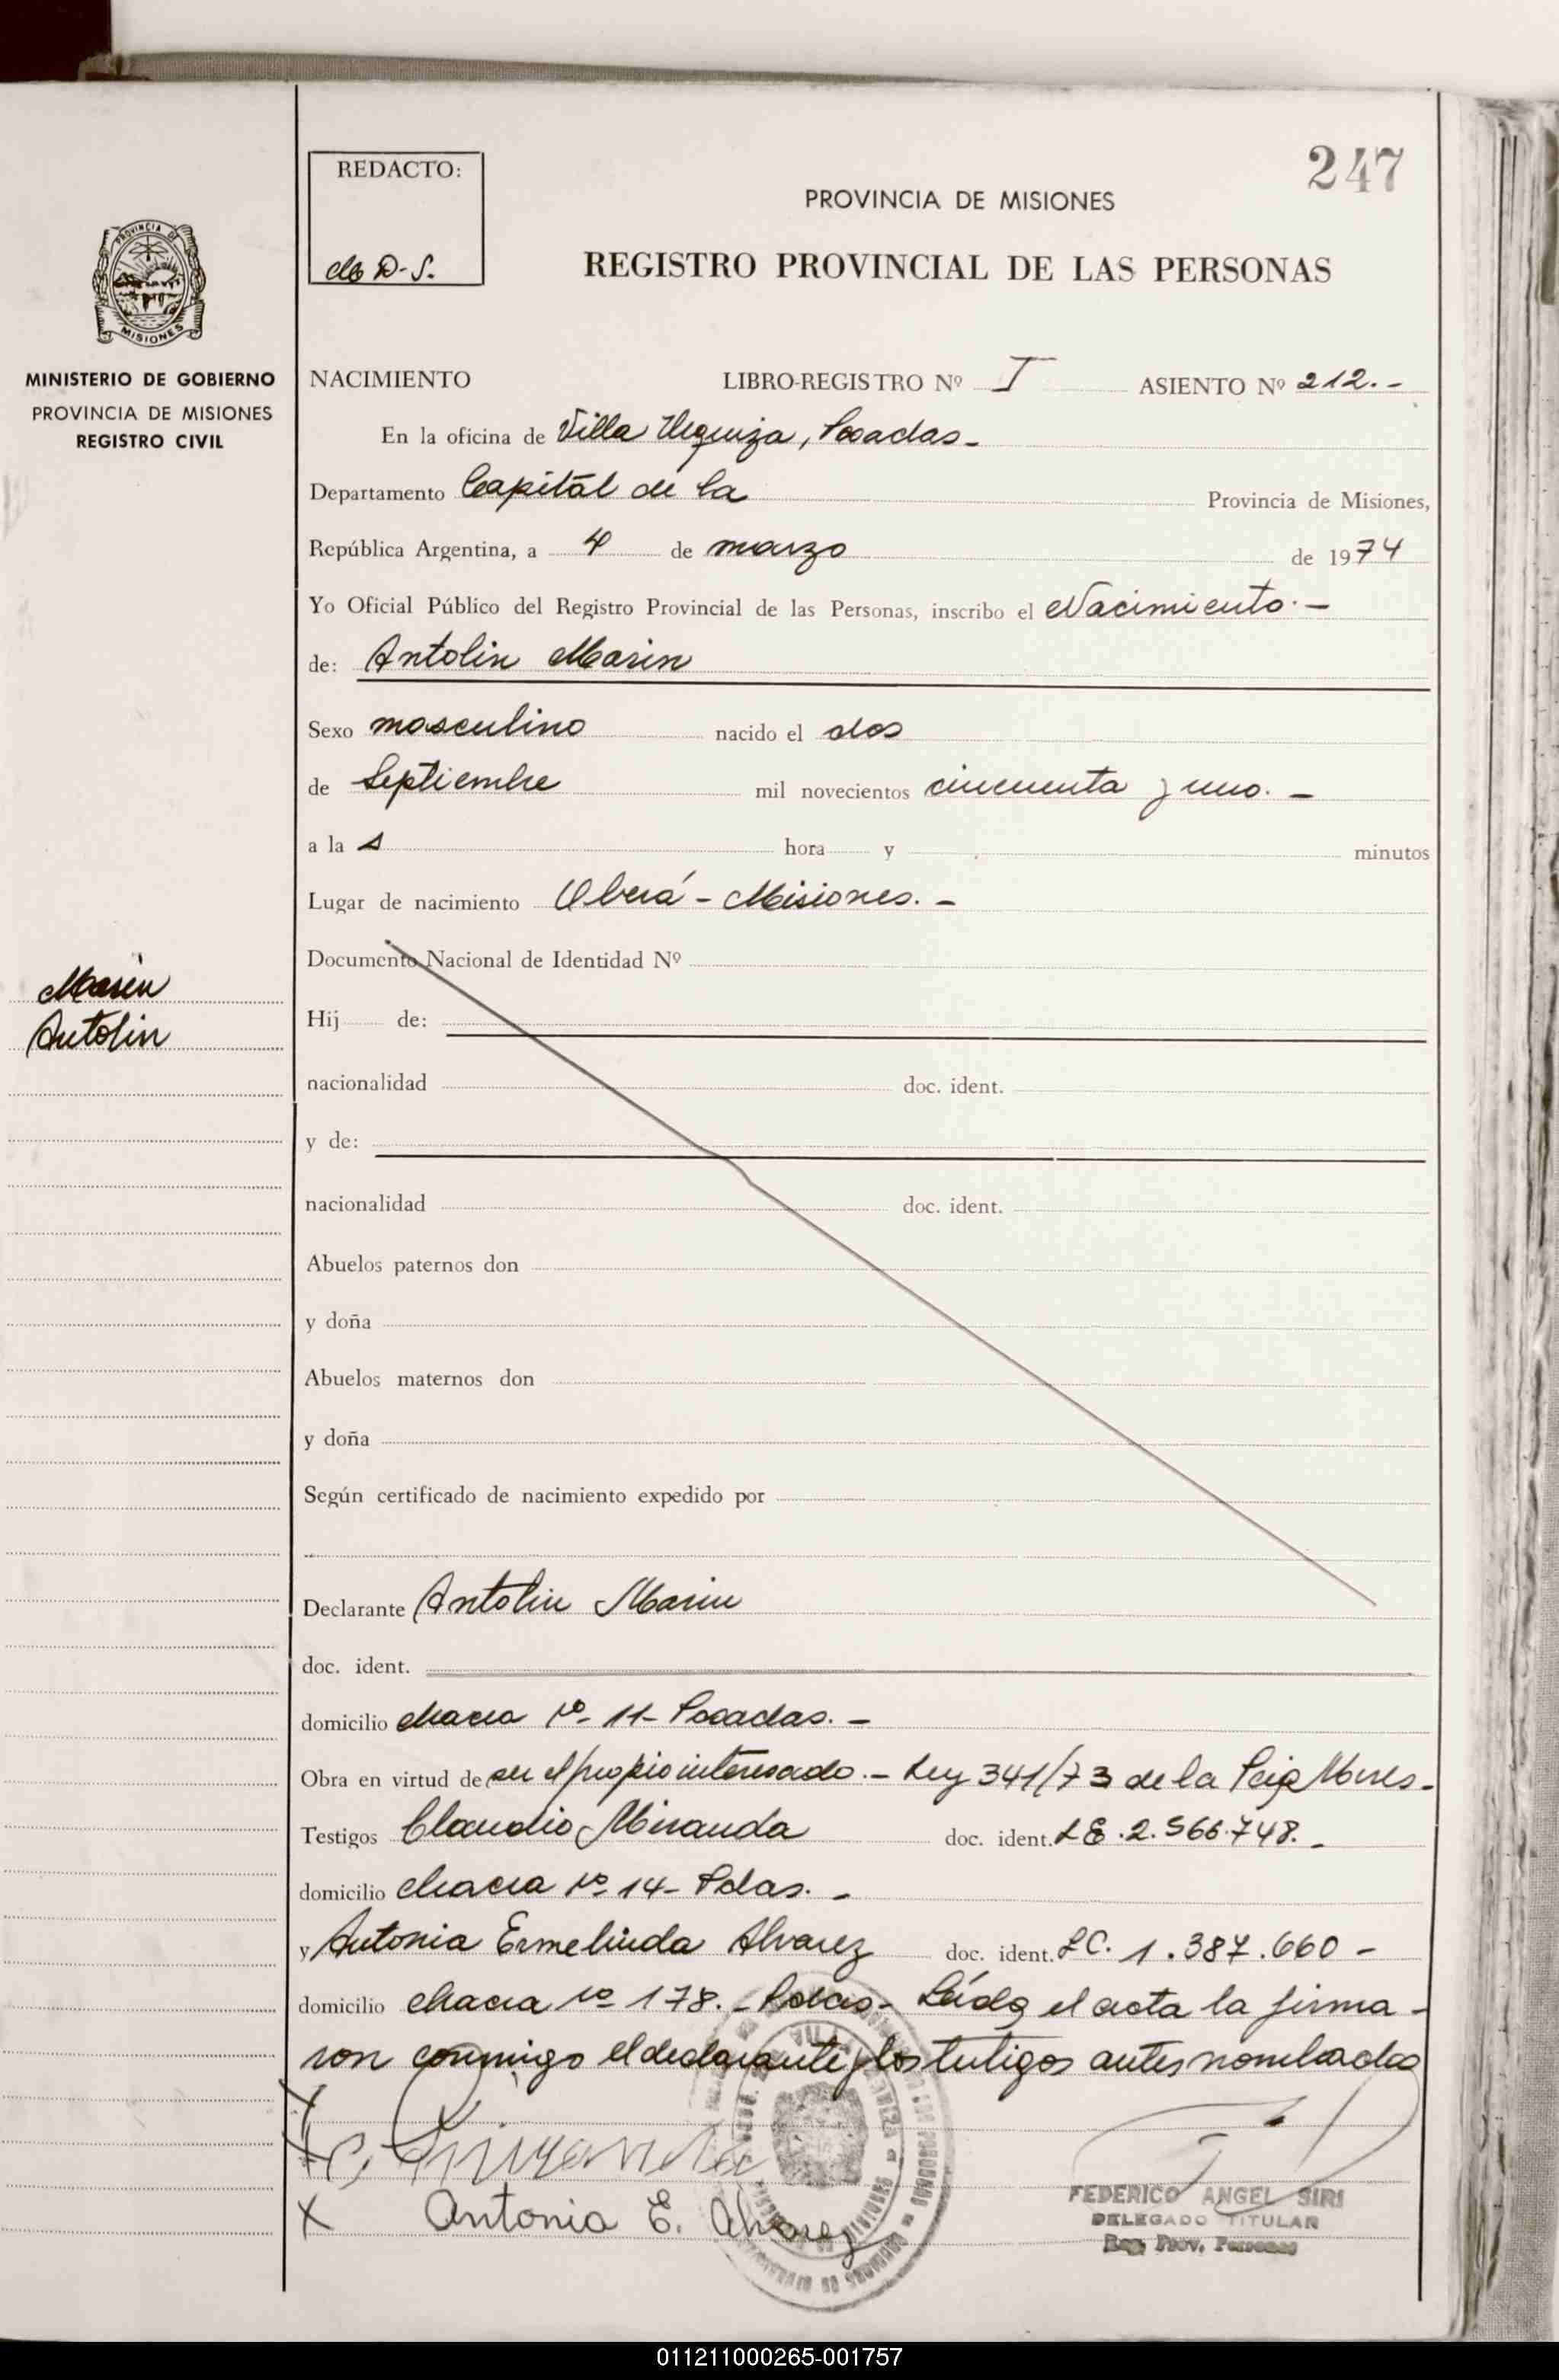 247
REDACTO:
PROVINCIA DE MISIONES
REGISTRO PROVINCIAL DE LAS PERSONAS
PROVINCIA DE
MISIONES
MINISTERIO DE GOBIERNO
PROVINCIA DE MISIONES
REGISTRO CIVIL
NACIMIENTO LIBRO-REGISTRO Nº I ASIENTO Nº 212.-
En la oficina de Villa Urquiza, Posadas-
Departamento Capital de la Provincia de Misiones,
República Argentina, a 4 de marzo de 1974
Yo Oficial Público del Registro Provincial de las Personas, inscribo el Nacimiento.-
de: Antolin Marin
Sexo masculino nacido el dos
de Septiembre mil novecientos cincuenta y uno.-
a la 1 hora y minutos
Lugar de nacimiento Oberá - Misiones.-
Documento Nacional de Identidad Nº
Marin
Antolin
Hij de:
nacionalidad doc. ident.
y de:
nacionalidad doc. ident.
Abuelos paternos don
y doña
Abuelos maternos don
y doña
Según certificado de nacimiento expedido por
Declarante Antolin Marin
doc. ident.
domicilio chacra Nº 11- Posadas.-
Obra en virtud de ser el propio interesado.- Ley 341/73 de la Pcia Mnes-
Testigos Claudio Miranda doc. ident. LE.2.566.748.-
domicilio chacra Nº 14- Pdas.-
y Antonia Ermelinda Alvarez doc. ident. LC. 1.387.660-
domicilio chacra Nº 178.- Pdas- Leída el acta la firma-
ron conmigo el declarante y los testigos antes nombrados
X
X
X Antonia E. Alvarez
FEDERICO ANGEL SIRI
DELEGADO TITULAR
Reg. Prov. Personas
011211000265-001757